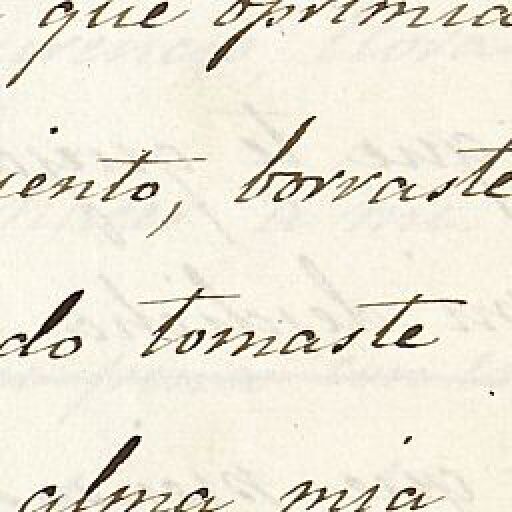 que oprimia
iento, borraste
do tomaste
alma mia